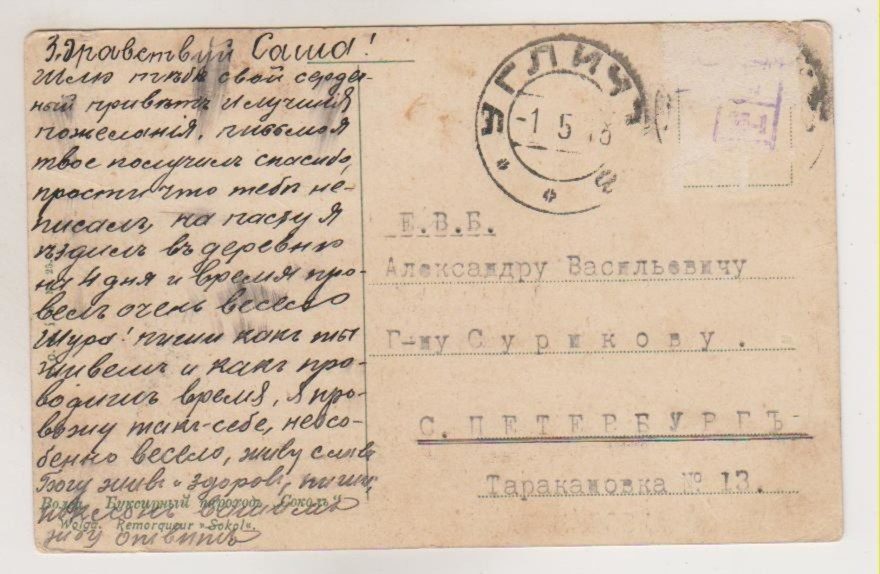 Здравствуй Саша!
Шлю тебѣ свой сердеч-
ный привѣтъ и лучшія
пожеланія, письмо я
твое получилъ спасибо,
прости что тебѣ не-
писалъ, на пасху я
ѣздилъ въ деревню
на 4 дня и время про-
велъ очень весело
Шура! пиши какъ ты
живешь и какъ про-
водишь время, я про-
вожу такъ-себе, неосо-
бенно весело, живу слава
Богу живъ и здоровъ, пиши
жду отвѣтъ
Волга. Буксирный пароход „Соколъ“.
Wolga. Remorqueur »Sokol«.
УГЛИЧЪ
-1 5 13
Е.В.Б.
Александру Васильевичу
Г-ну Сурикову.
С. ПЕТЕРБУРГЪ
Таракановка № 13.